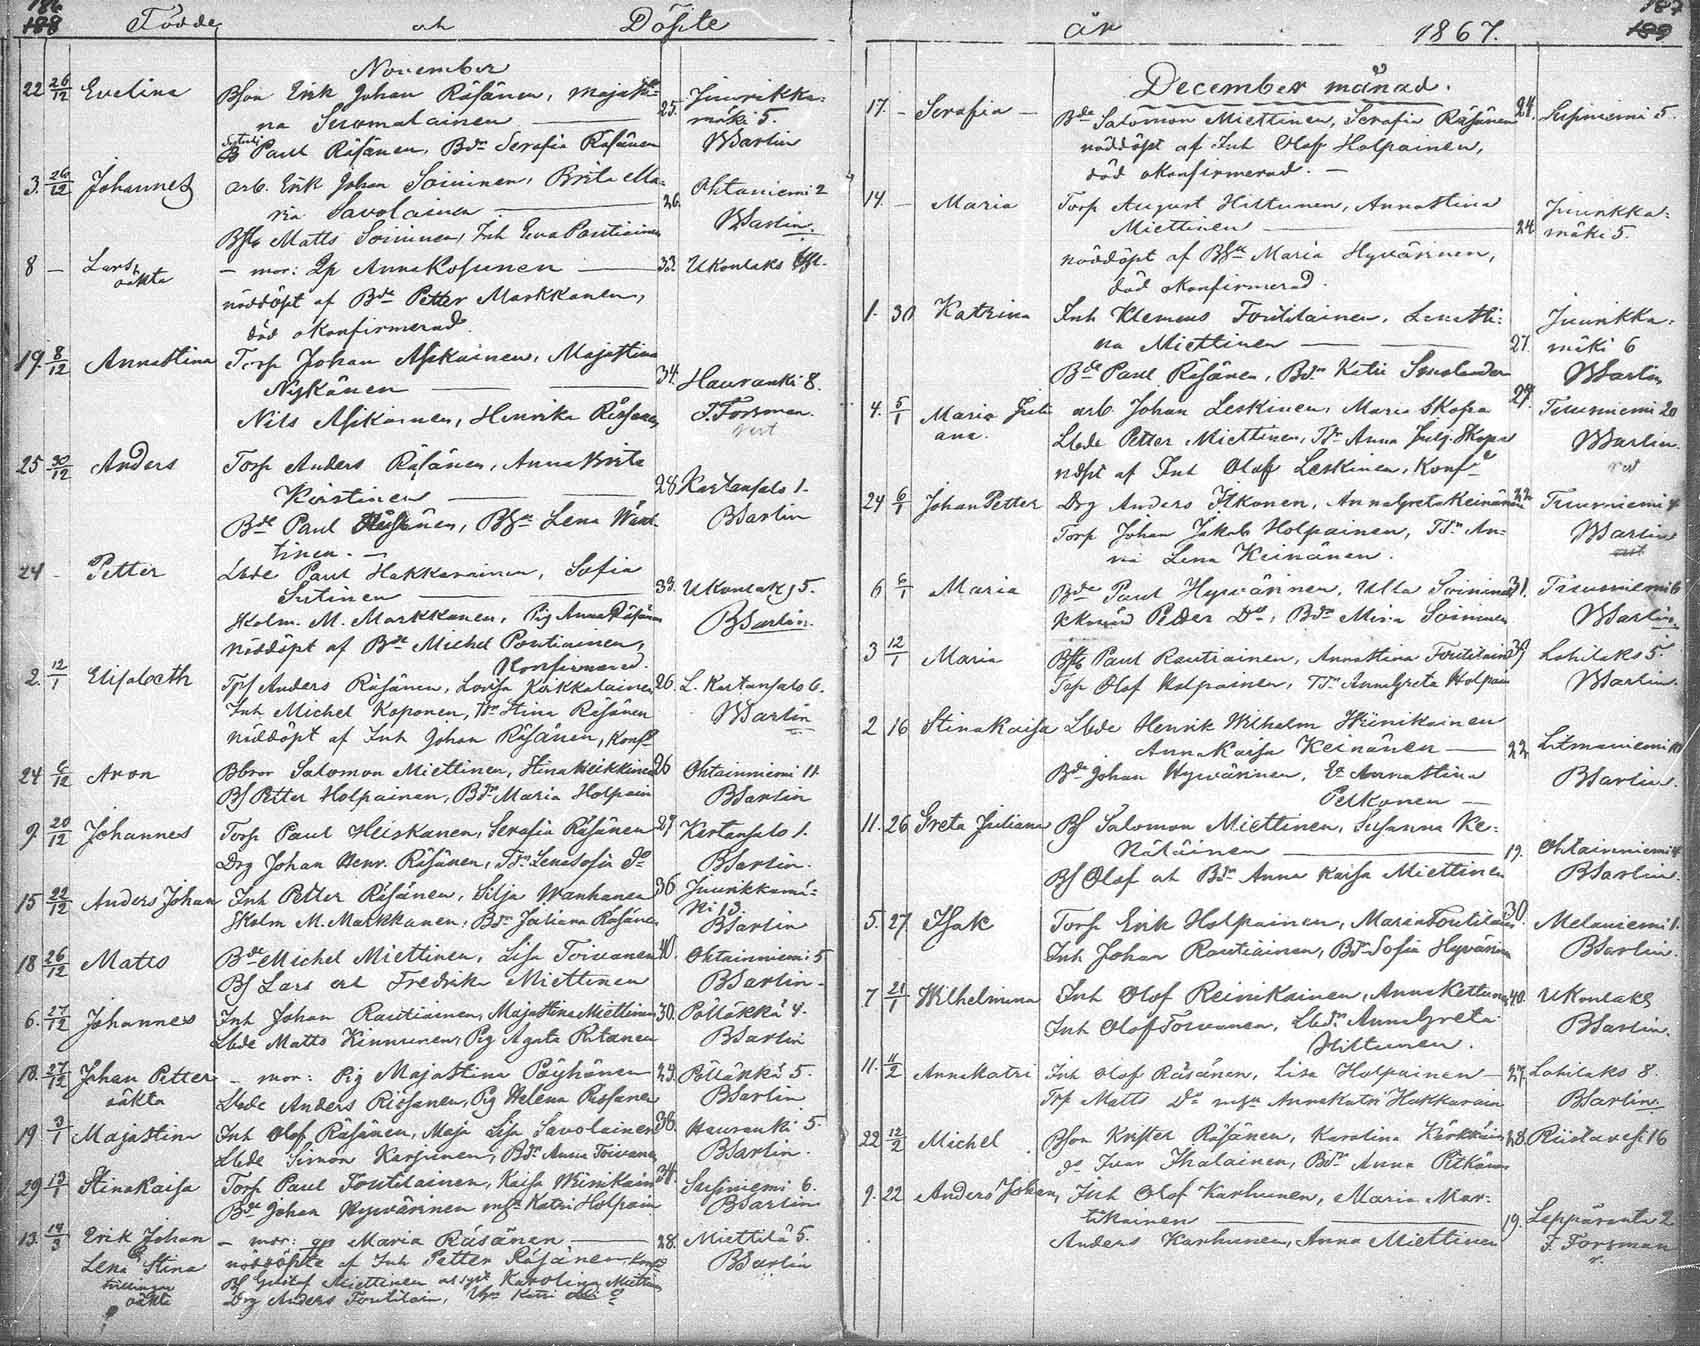 186
188 Födde och Döpte
November
22 26/12 Evelina Bson Erik Johan Räsänen, Majasti=
na Suomalainen 25. Juurikka=
mäki 5.
B Paul Räsänen, Bdr Serafia Räsänen BSarlin
3. 26/12 Johannes arb. Erik Johan Soininen, Brita Ma=
ria Savolainen 26. Ohtaniemi 2
Bste Matts Soininen, Inh Eva Pentikäinen BSarlin
8 – Lars, oäkta – mor: Qp Anna Kosunen 33. Ukonlaks
nöddöpt af Bde Petter Markkanen,
död okonfirmerad
19. 8/12 Annastina Torp Johan Asikainen, Majastina
Niskänen 34. Hauranki 8.
Nils Asikainen, Henrika Räsänen F. Forsman.
25 30/12 Anders Torp Anders Räsänen, Anna Brita
Kirstinen 28. Kartansalo 1.
Bde Paul Räsänen, Bgn Lena Wänt=
tinen. BSarlin
24 – Petter Lbde Paul Hakkarainen, Sofia
Sutinen 33. Ukonlaks 5.
Skolm. M. Markkanen, Pig Anna Räsänen BSarlin
nöddöpt af Bde Michel Pentikäinen,
Konfirmerad.
2. 12/1 Elisabeth Tpf Anders Räsänen, Lovisa Kirkkalainen 26. L. Kartansalo 6.
Inh Michel Koponen, Stina Räsänen BSarlin
nöddöpt af Inh Johan Räsänen, Konf
24 6/12 Aron Bbror Salomon Miettinen, Stina Heikkinen 26 Ohtainniemi 11
Bf Petter Holpainen, Bdr Maria Holpain BSarlin
9. 20/12 Johannes Torp Paul Heiskanen, Serafia Räsänen 27. Kertansalo 1.
Drg Johan Henr. Räsänen, Tdr Lenasofia Do BSarlin.
15 22/12 Anders Johan Inh Petter Räsänen, Silja Wanhanen 36. Juurikkamä=
ki 13
Skolm M. Markkanen, Bdr Juliana Räsänen BSarlin
18 26/12 Matts Bde Michel Miettinen, Lisa Toivanen 40. Ohtainniemi 5
Bf Lars och Fredrika Miettinen BSarlin
6. 27/12 Johannes Inh Johan Rautiainen, Majastina Miettinen 30. Pölläkkä 4.
Lbde Matts Kinnunen, Pig Agata Ritanen BSarlin
10. 27/12 Johan Petter – mor: Pig Majastina Pöyhönen 23. Pöllänkä 5.
oäkta Lbde Anders Rissanen, Pig Helena Rissanen BSarlin
19 3/1 Majastina Inh Olof Räsänen, Maja Lisa Savolainen 38. Hauranki 5.
Lbde Simon Karppinen, Bdr Anna Toivanen BSarlin.
29 13/1 Stinakaisa Torp Paul Toutilainen, Kaisa Weinikäin 34. Supiniemi 6.
Bde Johan Hyvärinen Katri Holpain BSarlin
13. 14/3 Erik Johan – mor: qp Maria Räsänen 28. Miettilä 5.
Lena Stina nöddöpte af Inh Petter Räsänen BSarlin
tvillingar Bf Gustaf Miettinen Karolina Miettinen
oäkta Drg Anders Toutilain, Katri
187
189
år 1867.
December månad.
17 – Serafia – Bde Salomon Miettinen, Serafia Räsänen 24. Supiniemi 5.
nöddöpt af Inh Olof Holpainen,
död okonfirmerad. –
14. – Maria Torp August Hiltunen, Annastina
Miettinen 24 Juurikka=
mäki 5.
nöddöpt af Maria Hyvärinen,
död okonfirmerad.
1. 30 Katrina Inh Klemens Toutilainen, Lenasti=
na Miettinen 27. Juurikka=
mäki 6
Bde Paul Räsänen, Bdr Katri BSarlin
4. 5/1 Maria Juli= arb. Johan Leskinen, Maria Skopa 27. Tuusniemi 20
ana. Lbde Petter Miettinen, Tdr Anna Julj. Skopa BSarlin.
nöpt af Inh Olof Leskinen, Konf
24 6/1 Johan Petter Drg Anders Itkonen, Annagreta Keinänen 22 Tuusniemi 4
Torp Johan Jakob Holpainen, Tdr An=
na Lena Keinänen. BSarlin
6 6/1 Maria Bde Paul Hyvärinen, Ulla Soininen 31. Tuusniemi 6
Peder Do, Bdr Miria Soininen BSarlin
3 12/1 Maria Bste Paul Rautiainen, Annastina Toutilain 39 Lahilaks 5.
Torp Olof Holpainen, Tdr Annagreta Holpain BSarlin.
2 16 Stinakaisa Lbde Henrik Wilhelm Heinikainen
Annakaisa Keinänen 22 Litmaniemi 10
Bde Johan Hyvärinen, Annastina BSarlin.
Pelkonen –
11. 26 Greta Juliana Bf Salomon Miettinen, Susanna Ke=
näläinen 19. Ohtainniemi 4
Bf Olof och Bdr Anna Kaisa Miettinen BSarlin.
5. 27. Isak Torp Erik Holpainen, Maria Toutilain 30. Melaniemi 1.
Inh Johan Rautiainen, Bdr Sofia Hyvärinen BSarlin.
7 21/1 Wilhelmina Inh Olof Reinikainen, Anna Kettunen 40. Ukonlaks
Inh Olof Toivanen, Lbdr Annagreta BSarlin.
Hiltunen.
11. 11/2 Annakatri Inh Olof Räsänen, Lisa Holpainen – 27. Lahilaks 8.
Torp Matts Do Annakatri Hakkarain BSarlin.
22 12/2 Michel Bson Krister Räsänen, Karolina Kärkkäin 28. Riistavesi 16
do Ivar Ihalainen, Bdr Anna Pitkänen
9. 22 Anders Johan, Inh Olof Karhunen, Maria Mar=
tikainen 19. Leppäranta 2
Anders Karhunen, Anna Miettinen F. Forsman